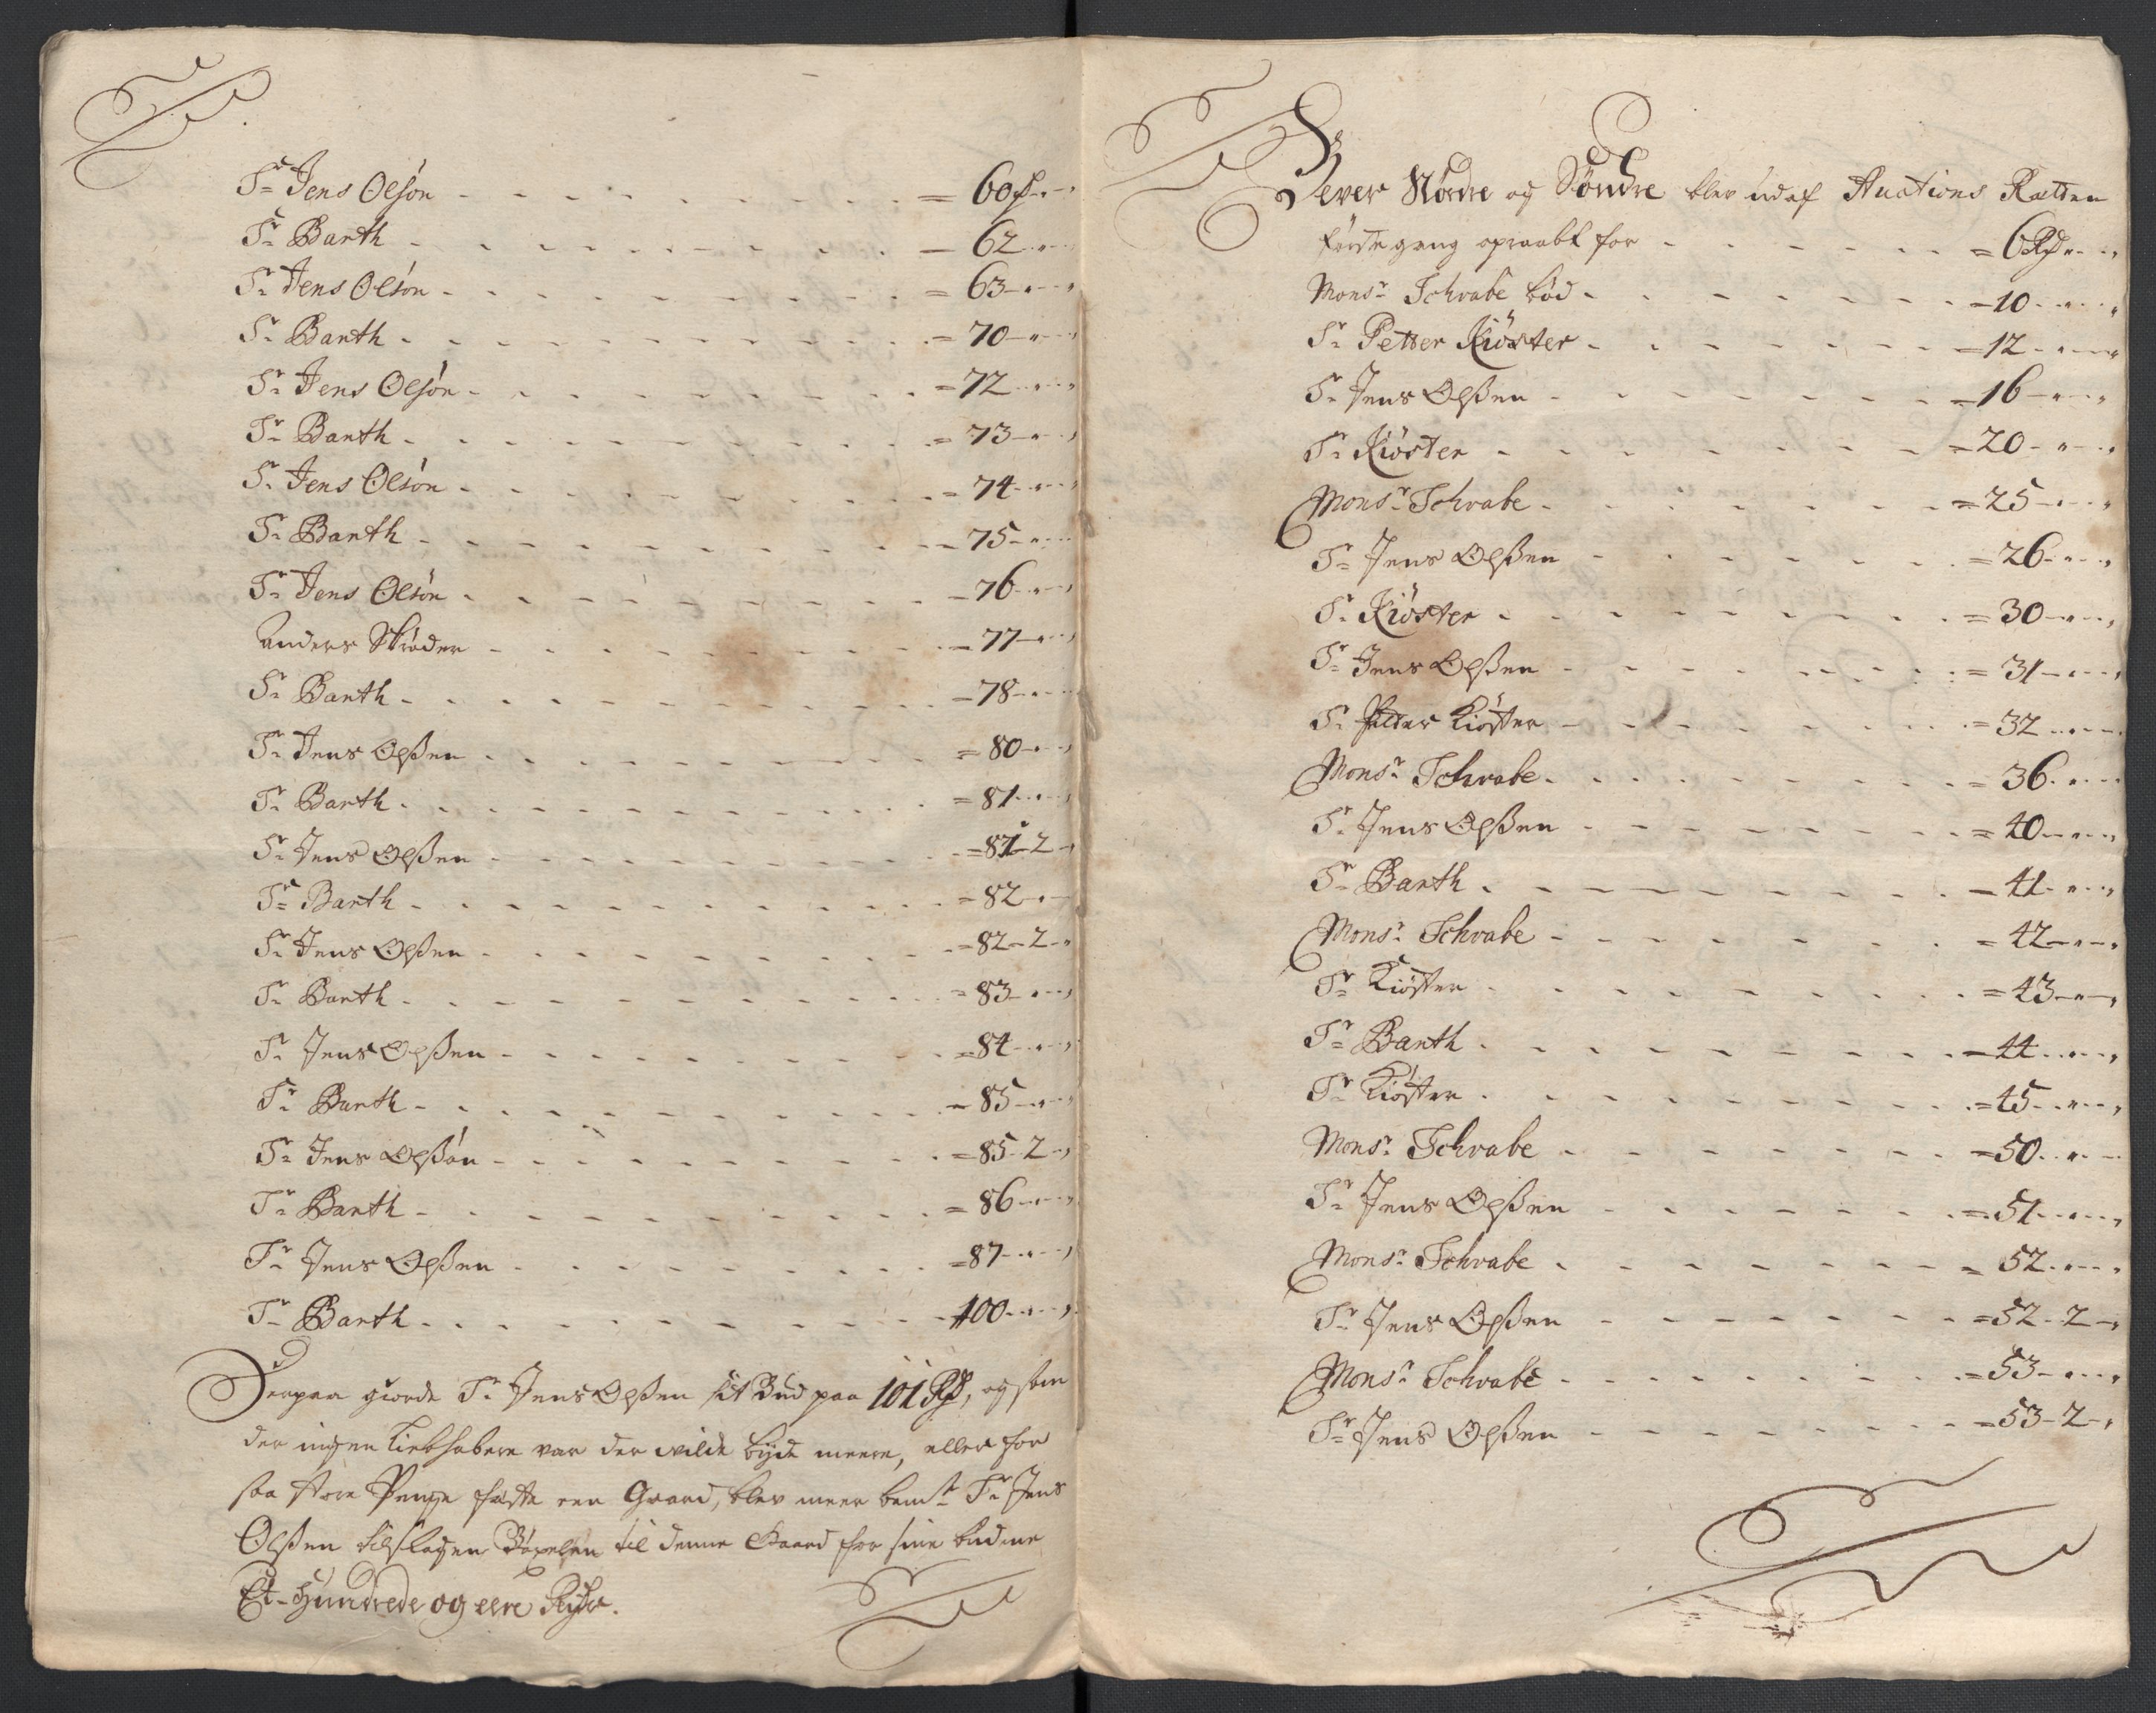 Sr Jens Olsøn - - - = 60 Rd - " - "
Sr Barth - - - = 62 - " - "
Sr Jens Olsøn - - - = 63 - " - "
Sr Barth - - - = 70 - " - "
Sr Jens Olsøn - - - = 72 - " - "
Sr Barth - - - = 73 - " - "
Sr Jens Olsøn - - - = 74 - " - "
Sr Barth - - - = 75 - " - "
Sr Jens Olsøn - - - = 76 - " - "
Anders Skrøder - - - = 77 - " - "
Sr Barth - - - = 78 - " - "
Sr Jens Olßen - - - = 80 - " - "
Sr Barth - - - = 81 - " - "
Sr Jens Olßen - - - = 81 - 2 - "
Sr Barth - - - = 82 - " - "
Sr Jens Olßen - - - = 82 - 2 - "
Sr Barth - - - = 83 - " - "
Sr Jens Olßen - - - = 84 - " - "
Sr Barth - - - = 85 - " - "
Sr Jens Olßøn - - - = 85 - 2 - "
Sr Barth - - - = 86 - " - "
Sr Jens Olßen - - - = 87 - " - "
Sr Barth - - - 100 - " - "
Derpaa giorde Sr Jens Olßen sit Bud paa 101 Rd, og som
der ingen Liebhabere var der vilde byde meere, eller for
saa store Penge fæste een Gaard, blev meer bemt Sr Jens
Olßen tilslagen Bøxelen til denne Gaard for sine budne
Et Hundrede og eere Rixdr.
Sever Nordre og Söndre blev ud af Auctions Rætten
første gang opraabt for - - - = 6 Rd " - "
Monsr Schvabe bød - - - = 10 - " - "
Sr Petter Kiøster - - - = 12 - " - "
Sr Jens Olßen - - - = 16 - " - "
Sr Kiøster - - - = 20 - " - "
Monsr Schvabe - - - = 25 - " - "
Sr Jens Olßen - - - = 26 - " - "
Sr Kiøster - - - = 30 - " - "
Sr Jens Olßen - - - = 31 - " - "
Sr Petter Kiøster - - - = 32 - " - "
Monsr Schvabe - - - = 36 - " - "
Sr Jens Olßen - - - = 40 - " - "
Sr Barth - - - = 41 - " - "
Monsr Schvabe - - - = 42 - " - "
Sr Kiøster - - - = 43 - " - "
Sr Barth - - - = 44 - " - "
Sr Kiøster - - - = 45 - " - "
Monsr Schvabe - - - = 50 - " - "
Sr Jens Olßen - - - = 51 - " - "
Monsr Schvabe - - - = 52 - " - "
Sr Jens Olßen - - - = 52 - 2 - "
Monsr Schvabe - - - = 53 - " - "
Sr Jens Olßen - - - = 53 - 2 - "